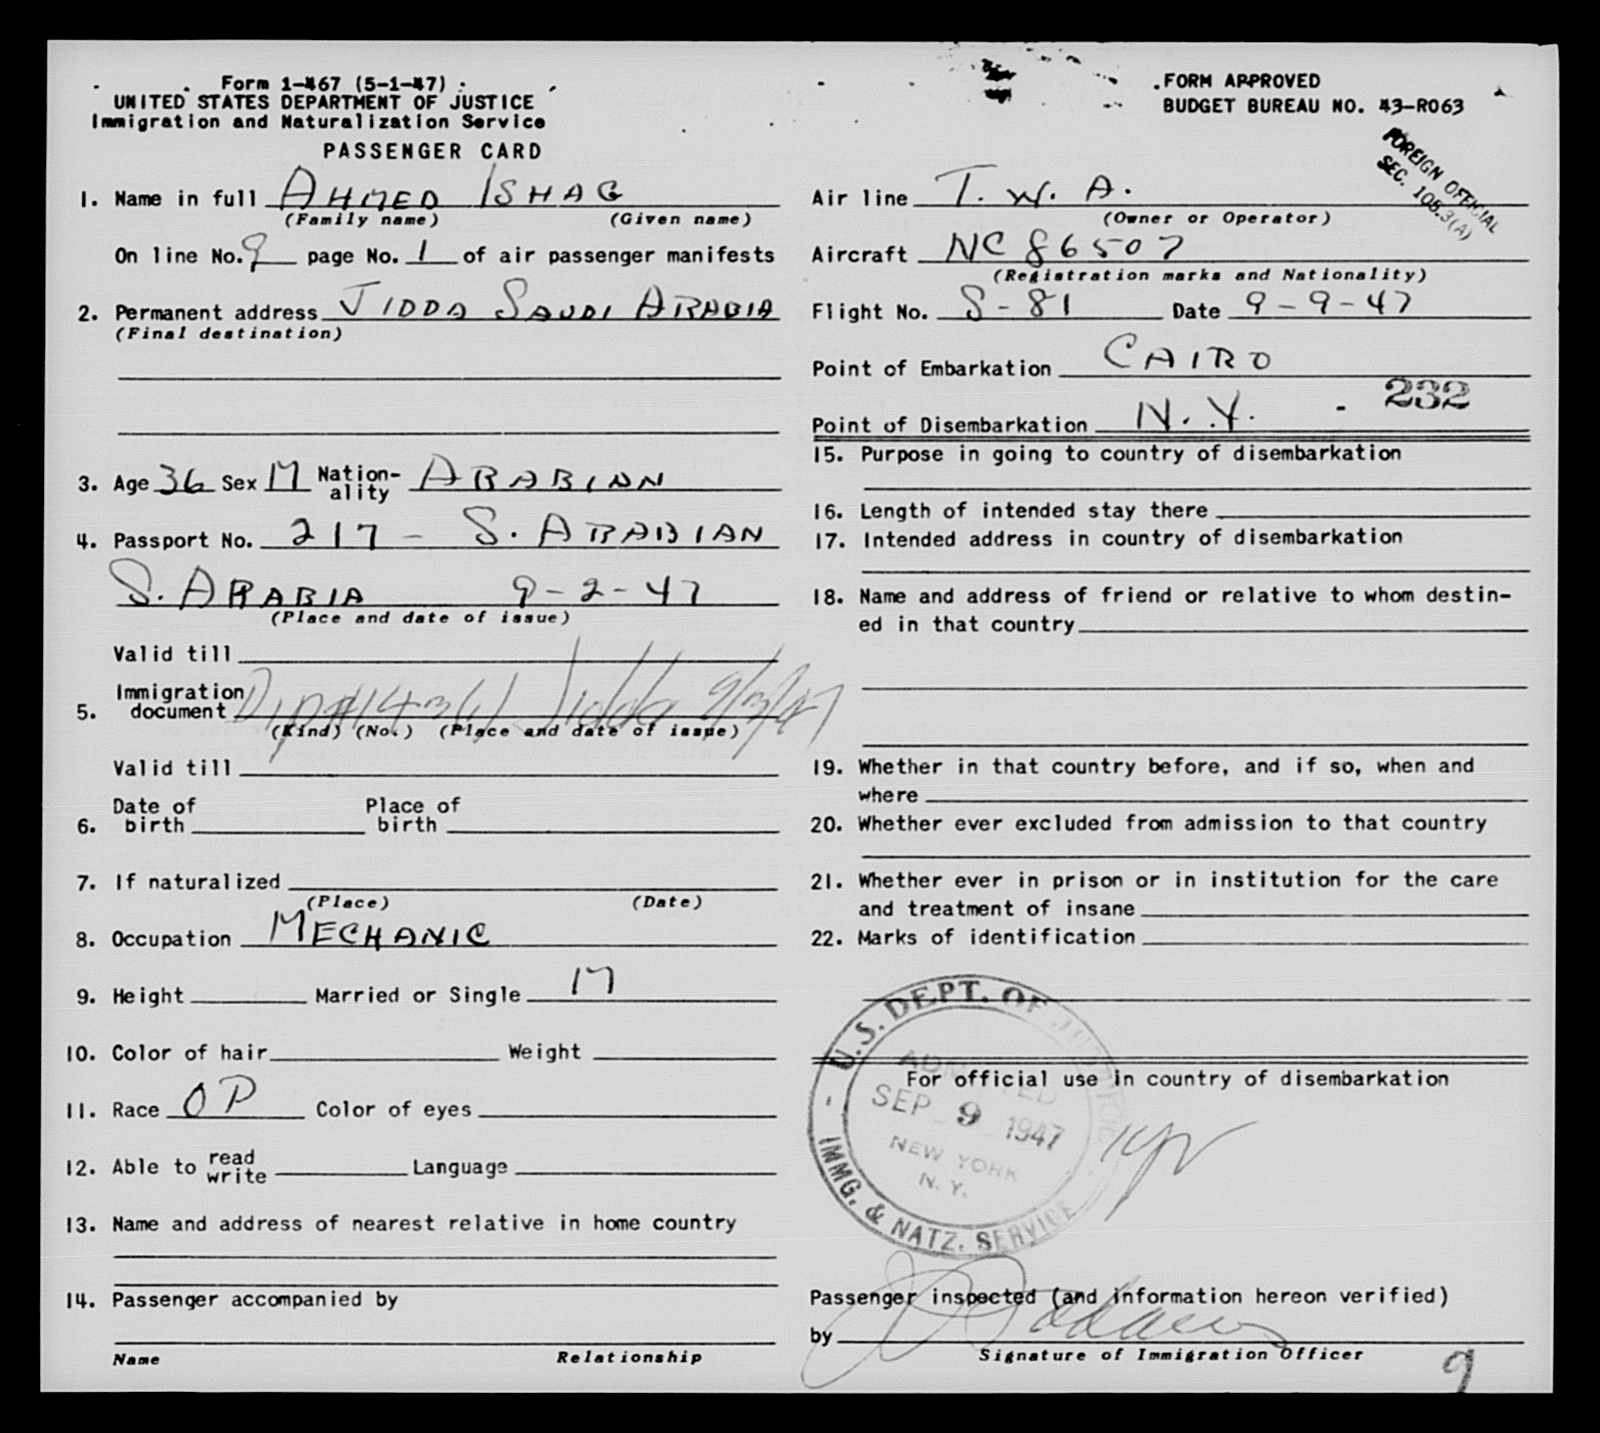 Form I-467 (5-1-47)
UNITED STATES DEPARTMENT OF JUSTICE
Immigration and Naturalization Service
PASSENGER CARD
1. Name in full AHMED ISHAG
(Family name) (Given name)
On line No. 9 page No. 1 of air passenger manifests
2. Permanent address JIDDA SAUDI ARABIA
(Final destination)
3. Age 36 Sex M Nation-ality ARABIAN
4. Passport No. 217 - S. ARABIAN
S. ARABIA 9-2-47
(Place and date of issue)
Valid till
5. Immigration document Jidda 9/3/47
(Kind) (No.) (Place and date of issue)
Valid till
6. Date of birth Place of birth
7. If naturalized
(Place) (Date)
8. Occupation MECHANIC
9. Height Married or Single M
10. Color of hair Weight
11. Race OP Color of eyes
12. Able to read write Language
13. Name and address of nearest relative in home country
14. Passenger accompanied by
Name Relationship
FORM APPROVED
BUDGET BUREAU NO. 43-R063
FOREIGN OFFICIAL
SEC. 105.3(A)
Air line T. W. A.
(Owner or Operator)
Aircraft NC 86507
(Registration marks and Nationality)
Flight No. S-81 Date 9-9-47
Point of Embarkation CAIRO
232
Point of Disembarkation N. Y.
15. Purpose in going to country of disembarkation
16. Length of intended stay there
17. Intended address in country of disembarkation
18. Name and address of friend or relative to whom destin-
ed in that country
19. Whether in that country before, and if so, when and
where
20. Whether ever excluded from admission to that country
21. Whether ever in prison or in institution for the care
and treatment of insane
22. Marks of identification
For official use in country of disembarkation
U.S. DEPT. OF JUSTICE
ADMITTED
SEP 9 1947
NEW YORK
N. Y.
IMMG. & NATZ. SERVICE
Passenger inspected (and information hereon verified)
by
Signature of Immigration Officer
9